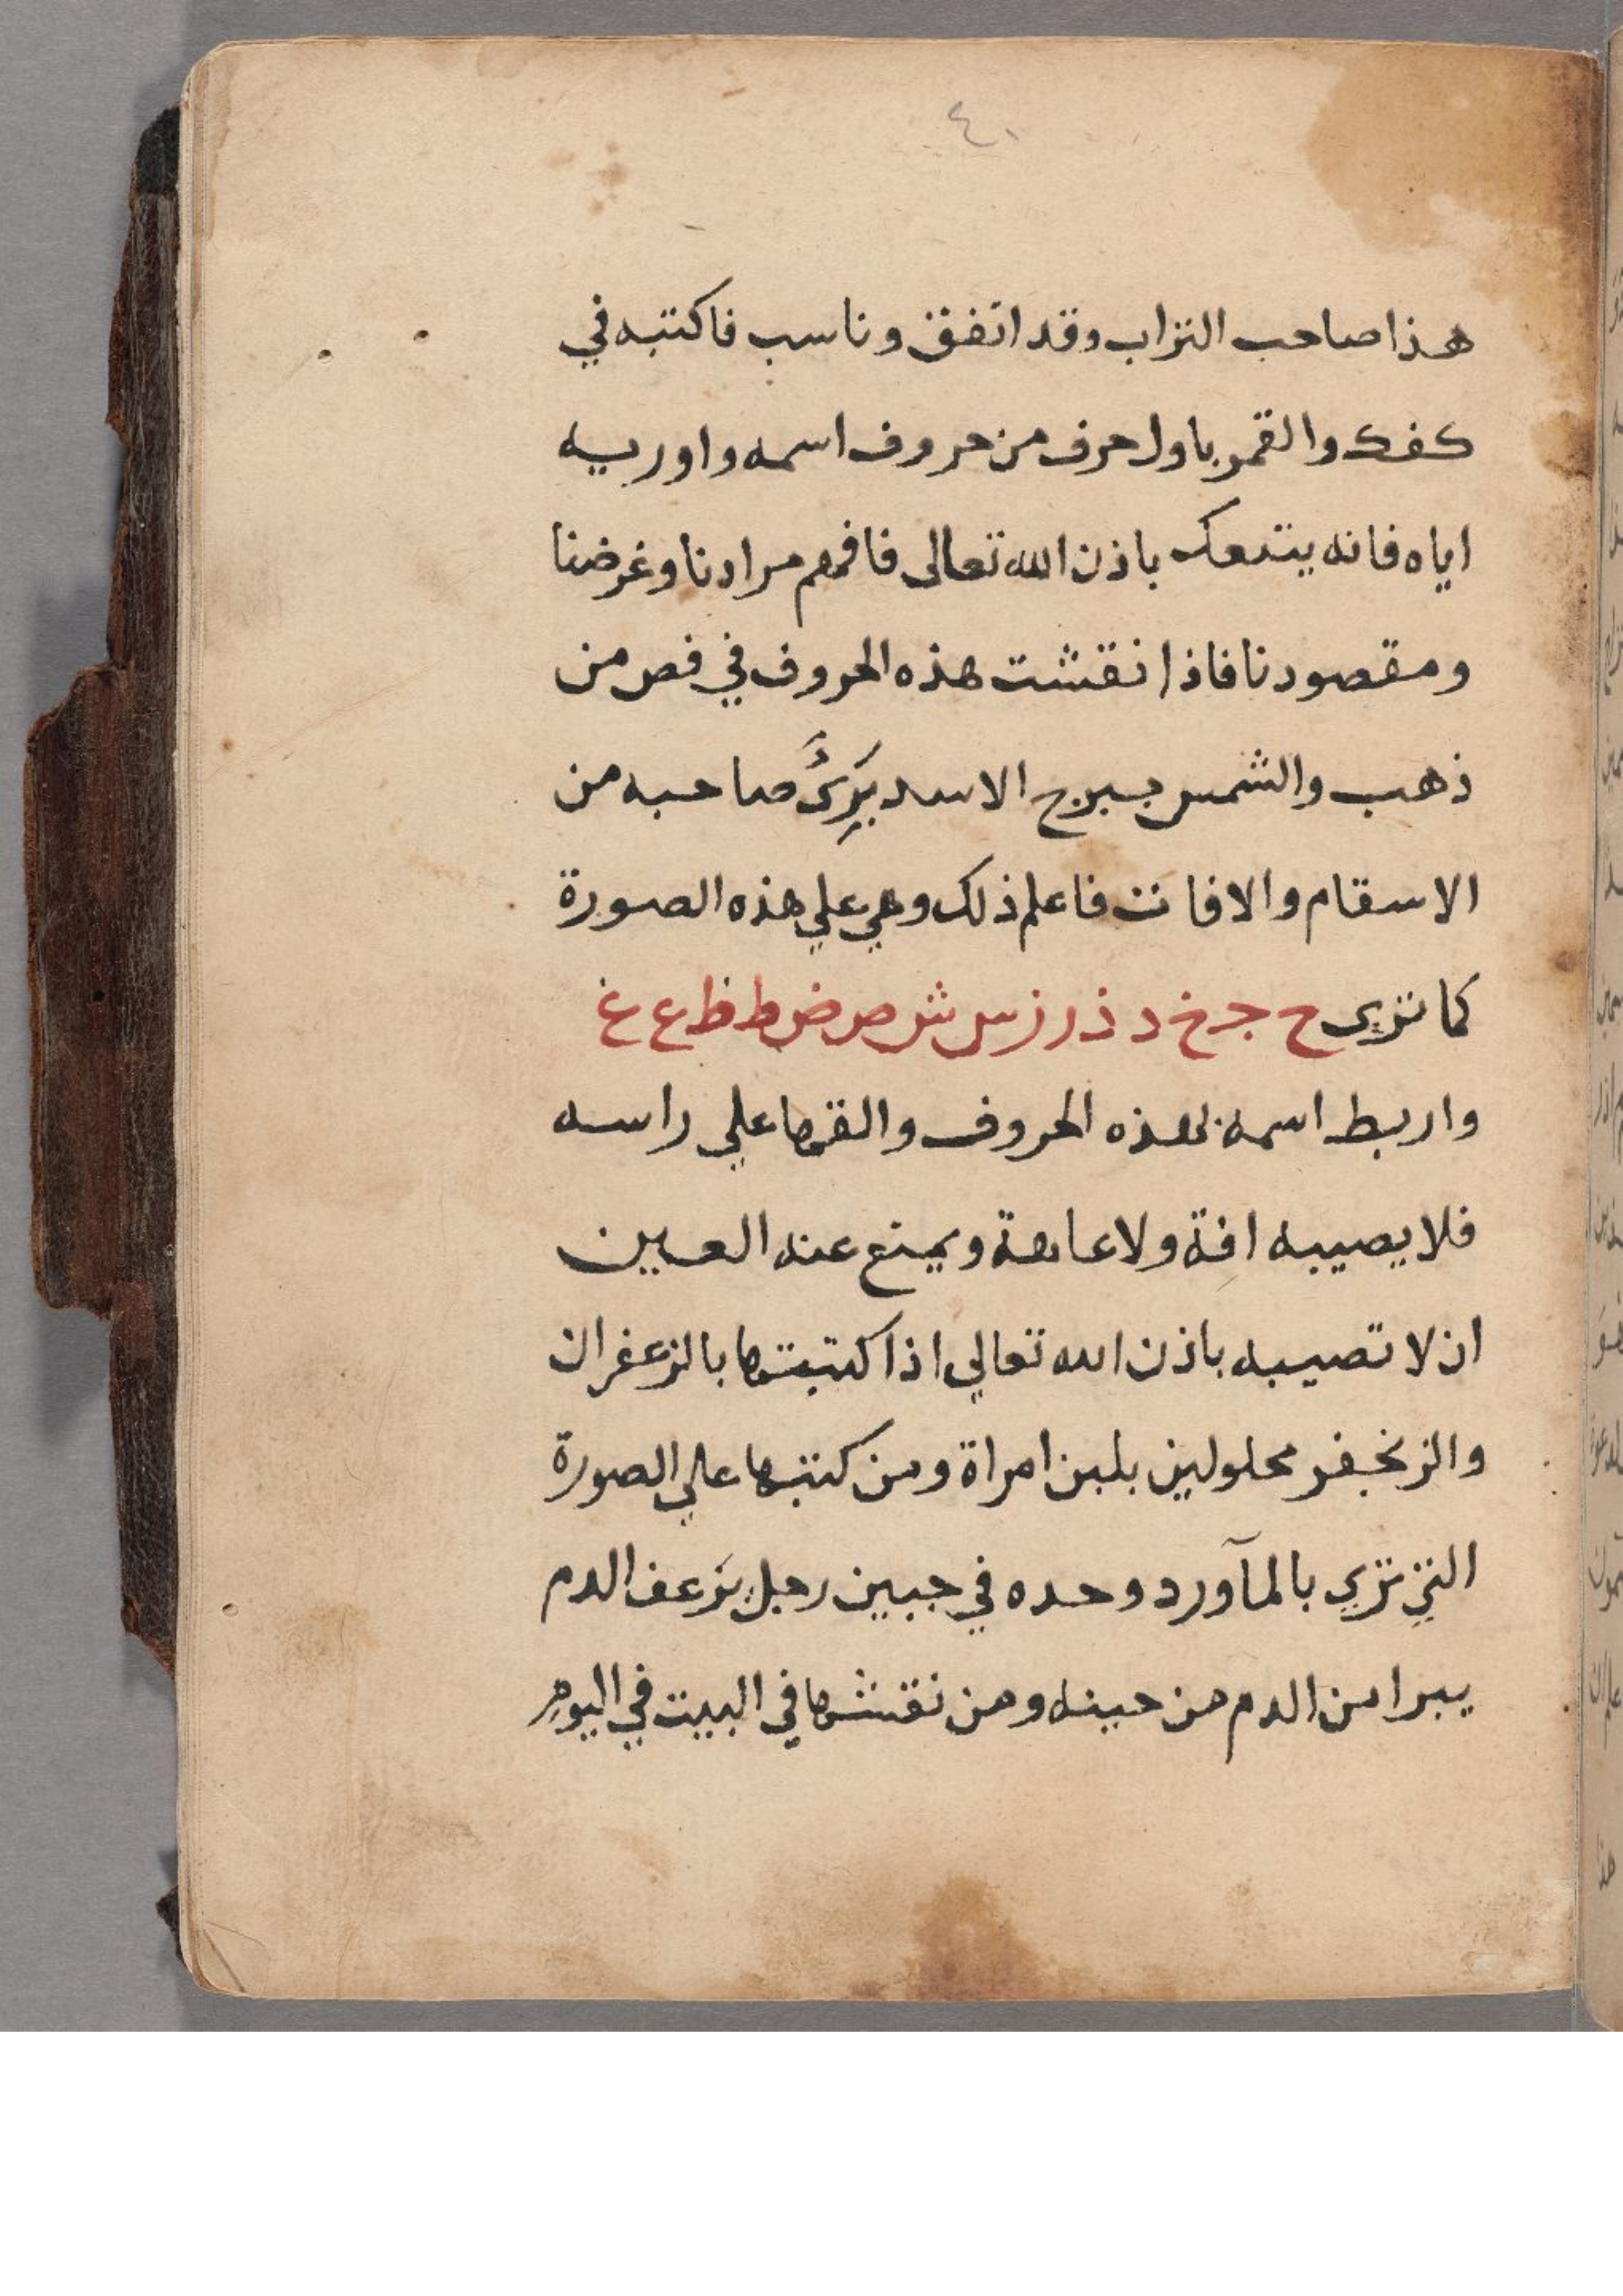 ٤٠
هذا صاحب التراب وقد اتفق وناسب فاكتبه في
كفك والقمر باول حرف من حروف اسمه واوريه
اياه فانه يتبعك باذن الله تعالى فافهم مرادنا وغرضنا
ومقصودنا فاذا نقشت هذه الحروف في فص من
ذهب والشمس ببرج الاسد بَرِئَ صاحبه من
الاسقام والافات فاعلم ذلك وهي علي هذه الصورة
كما تري ح ج خ د ذ ر ز س ش ص ض ط ظ ع غ
واربط اسمه بهذه الحروف والقها علي راسه
فلا يصيبه افة ولا عاهة ويمنع عنه العين
ان لا تصيبه باذن الله تعالي اذا كتبتها بالزعفران
والزنجفر محلولين بلبن امراة ومن كتبها علي الصورة
التي تري بالمآورد وحده في جبين رجل يَرعف الدم
يبرا من الدم من حينه ومن نقشها في البيت في اليوم